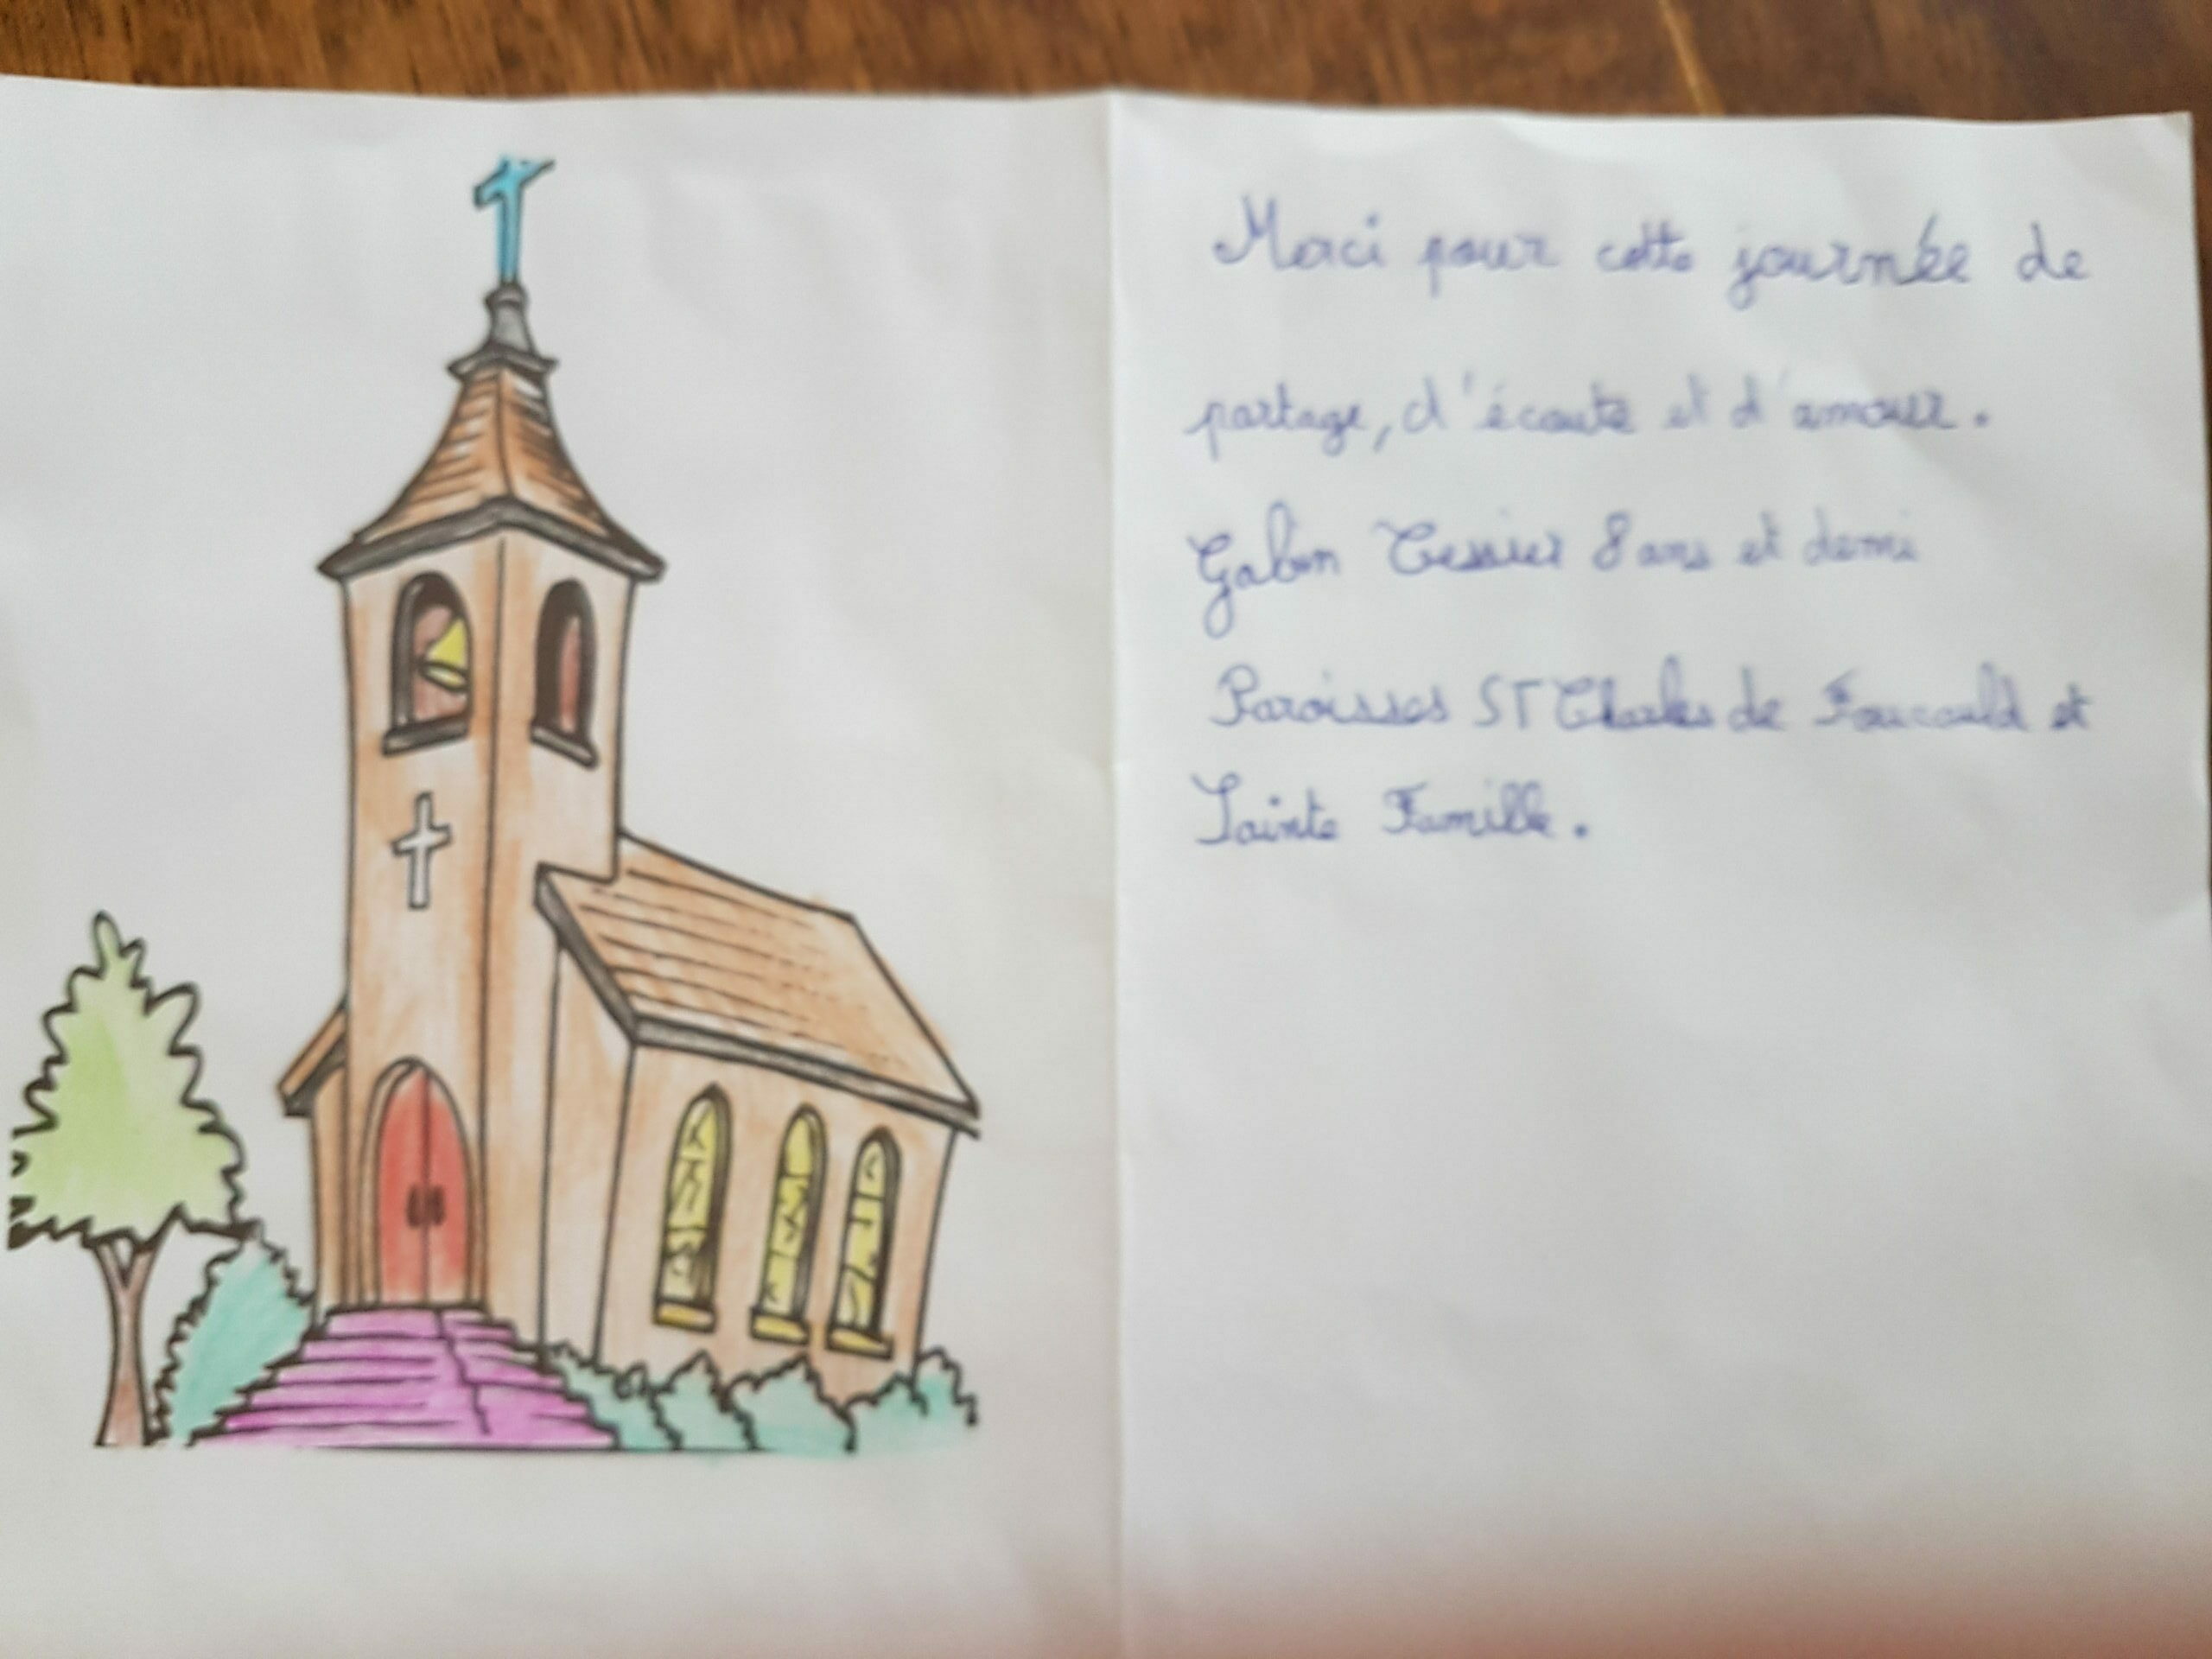 Merci pour cette journée de
partage, d'écoute et d'amour.
Gabin Tessier 8 ans et demi
Paroisses ST Charles de Foucauld et
Sainte Famille.